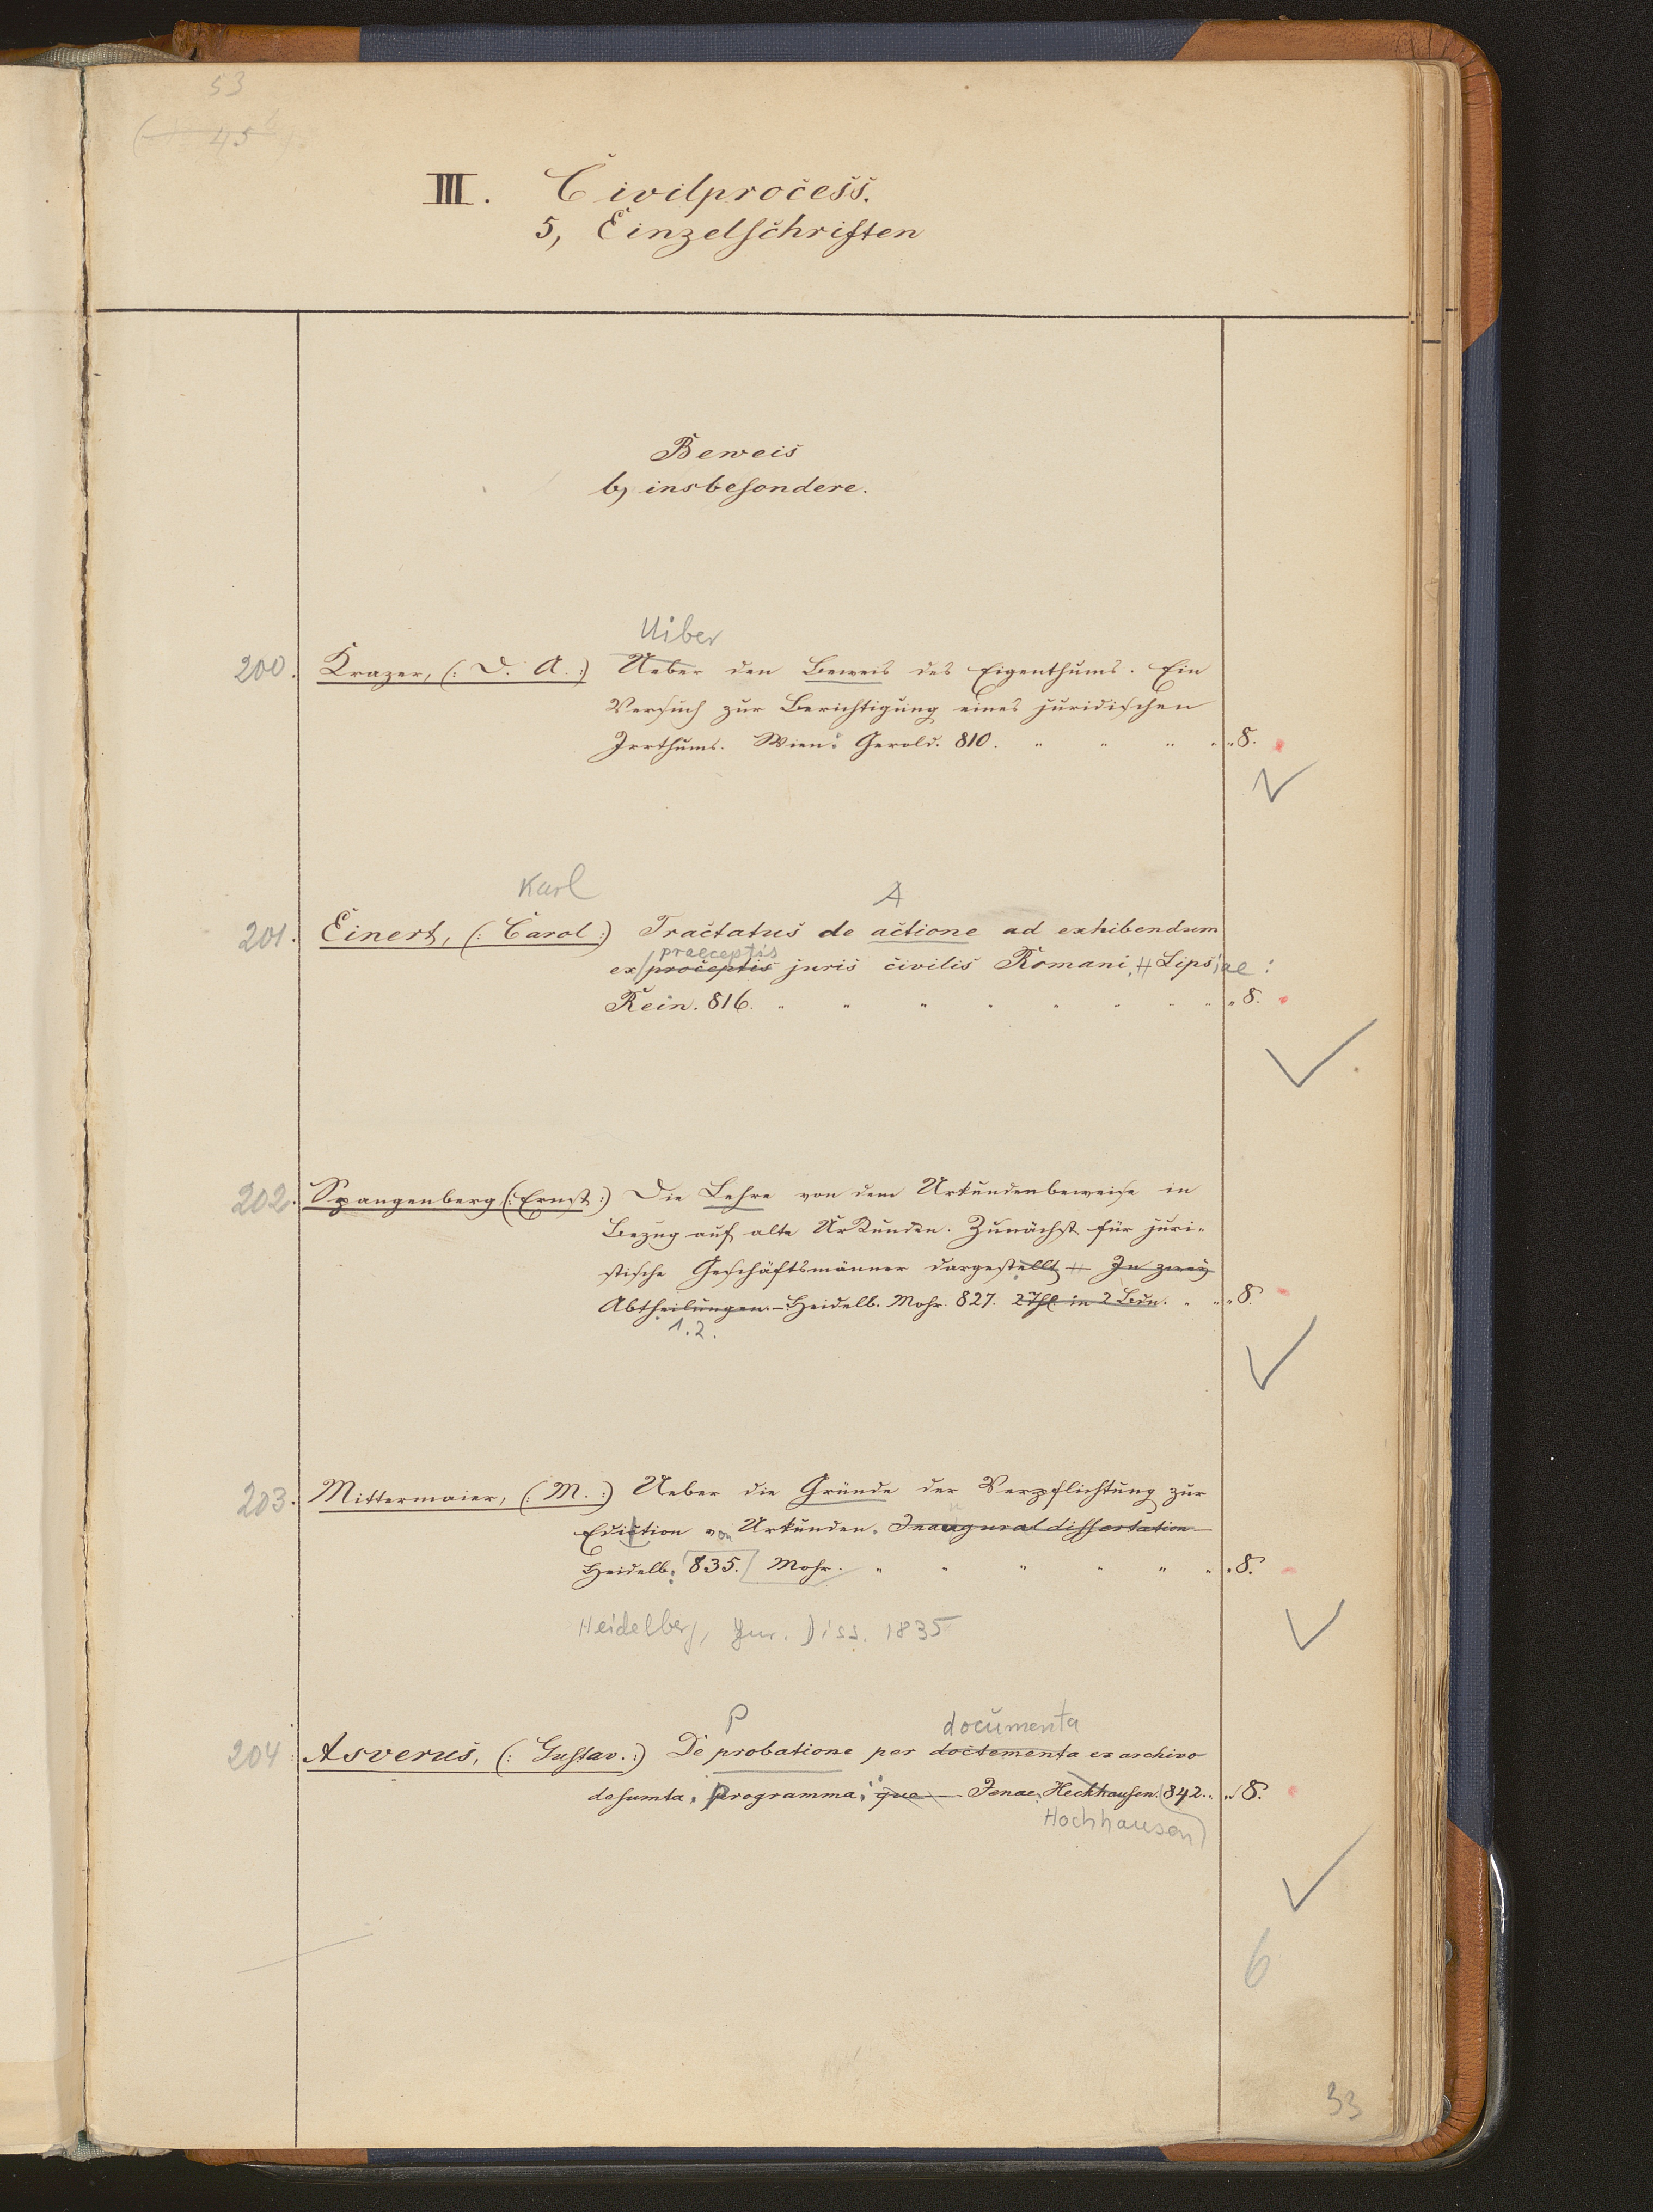 53
45
III. Civilprocess.
5, Einzelschriften
Beweis
b, insbesondere.
Uiber
200. Krazer, (: D. A. :) Ueber den Beweis des Eigenthums. Ein
Versuch zur Berichtigung eines juridischen
Irrthums. Wien: Gerold. 810. " " " " " 8.
Karl A
201. Einert, (: Carol :) Tractatus de actione ad exhibendum
praeceptis
ex proceptis juris civilis Romani, Lipsiae:
Rein. 816. " " " " " " " " " 8.
202. Spangenberg (: Ernst :) Die Lehre von dem Urkundenbeweise in
Bezug auf alte Urkunden. Zunächst für juri-
stische Geschäftsmänner dargestellt — In zwey
Abtheilungen. — Heidelb. Mohr. 827. 2 Thl. in 2 Bdn. " " " 8.
1.2.
203. Mittermaier, (: M. :) Ueber die Gründe der Verpflichtung zur
Edition von Urkunden. Inaugural dissertation
Heidelb: 835. Mohr. " " " " " " " 8.
Heidelberg, Jur. Diss. 1835
P documenta
204. Asverus, (: Gustav. :) De probatione per doctementa ex archivo
desumta, Programma, que — Jenae, Heckhausen. 842. " " 8.
Hochhausen
6
33